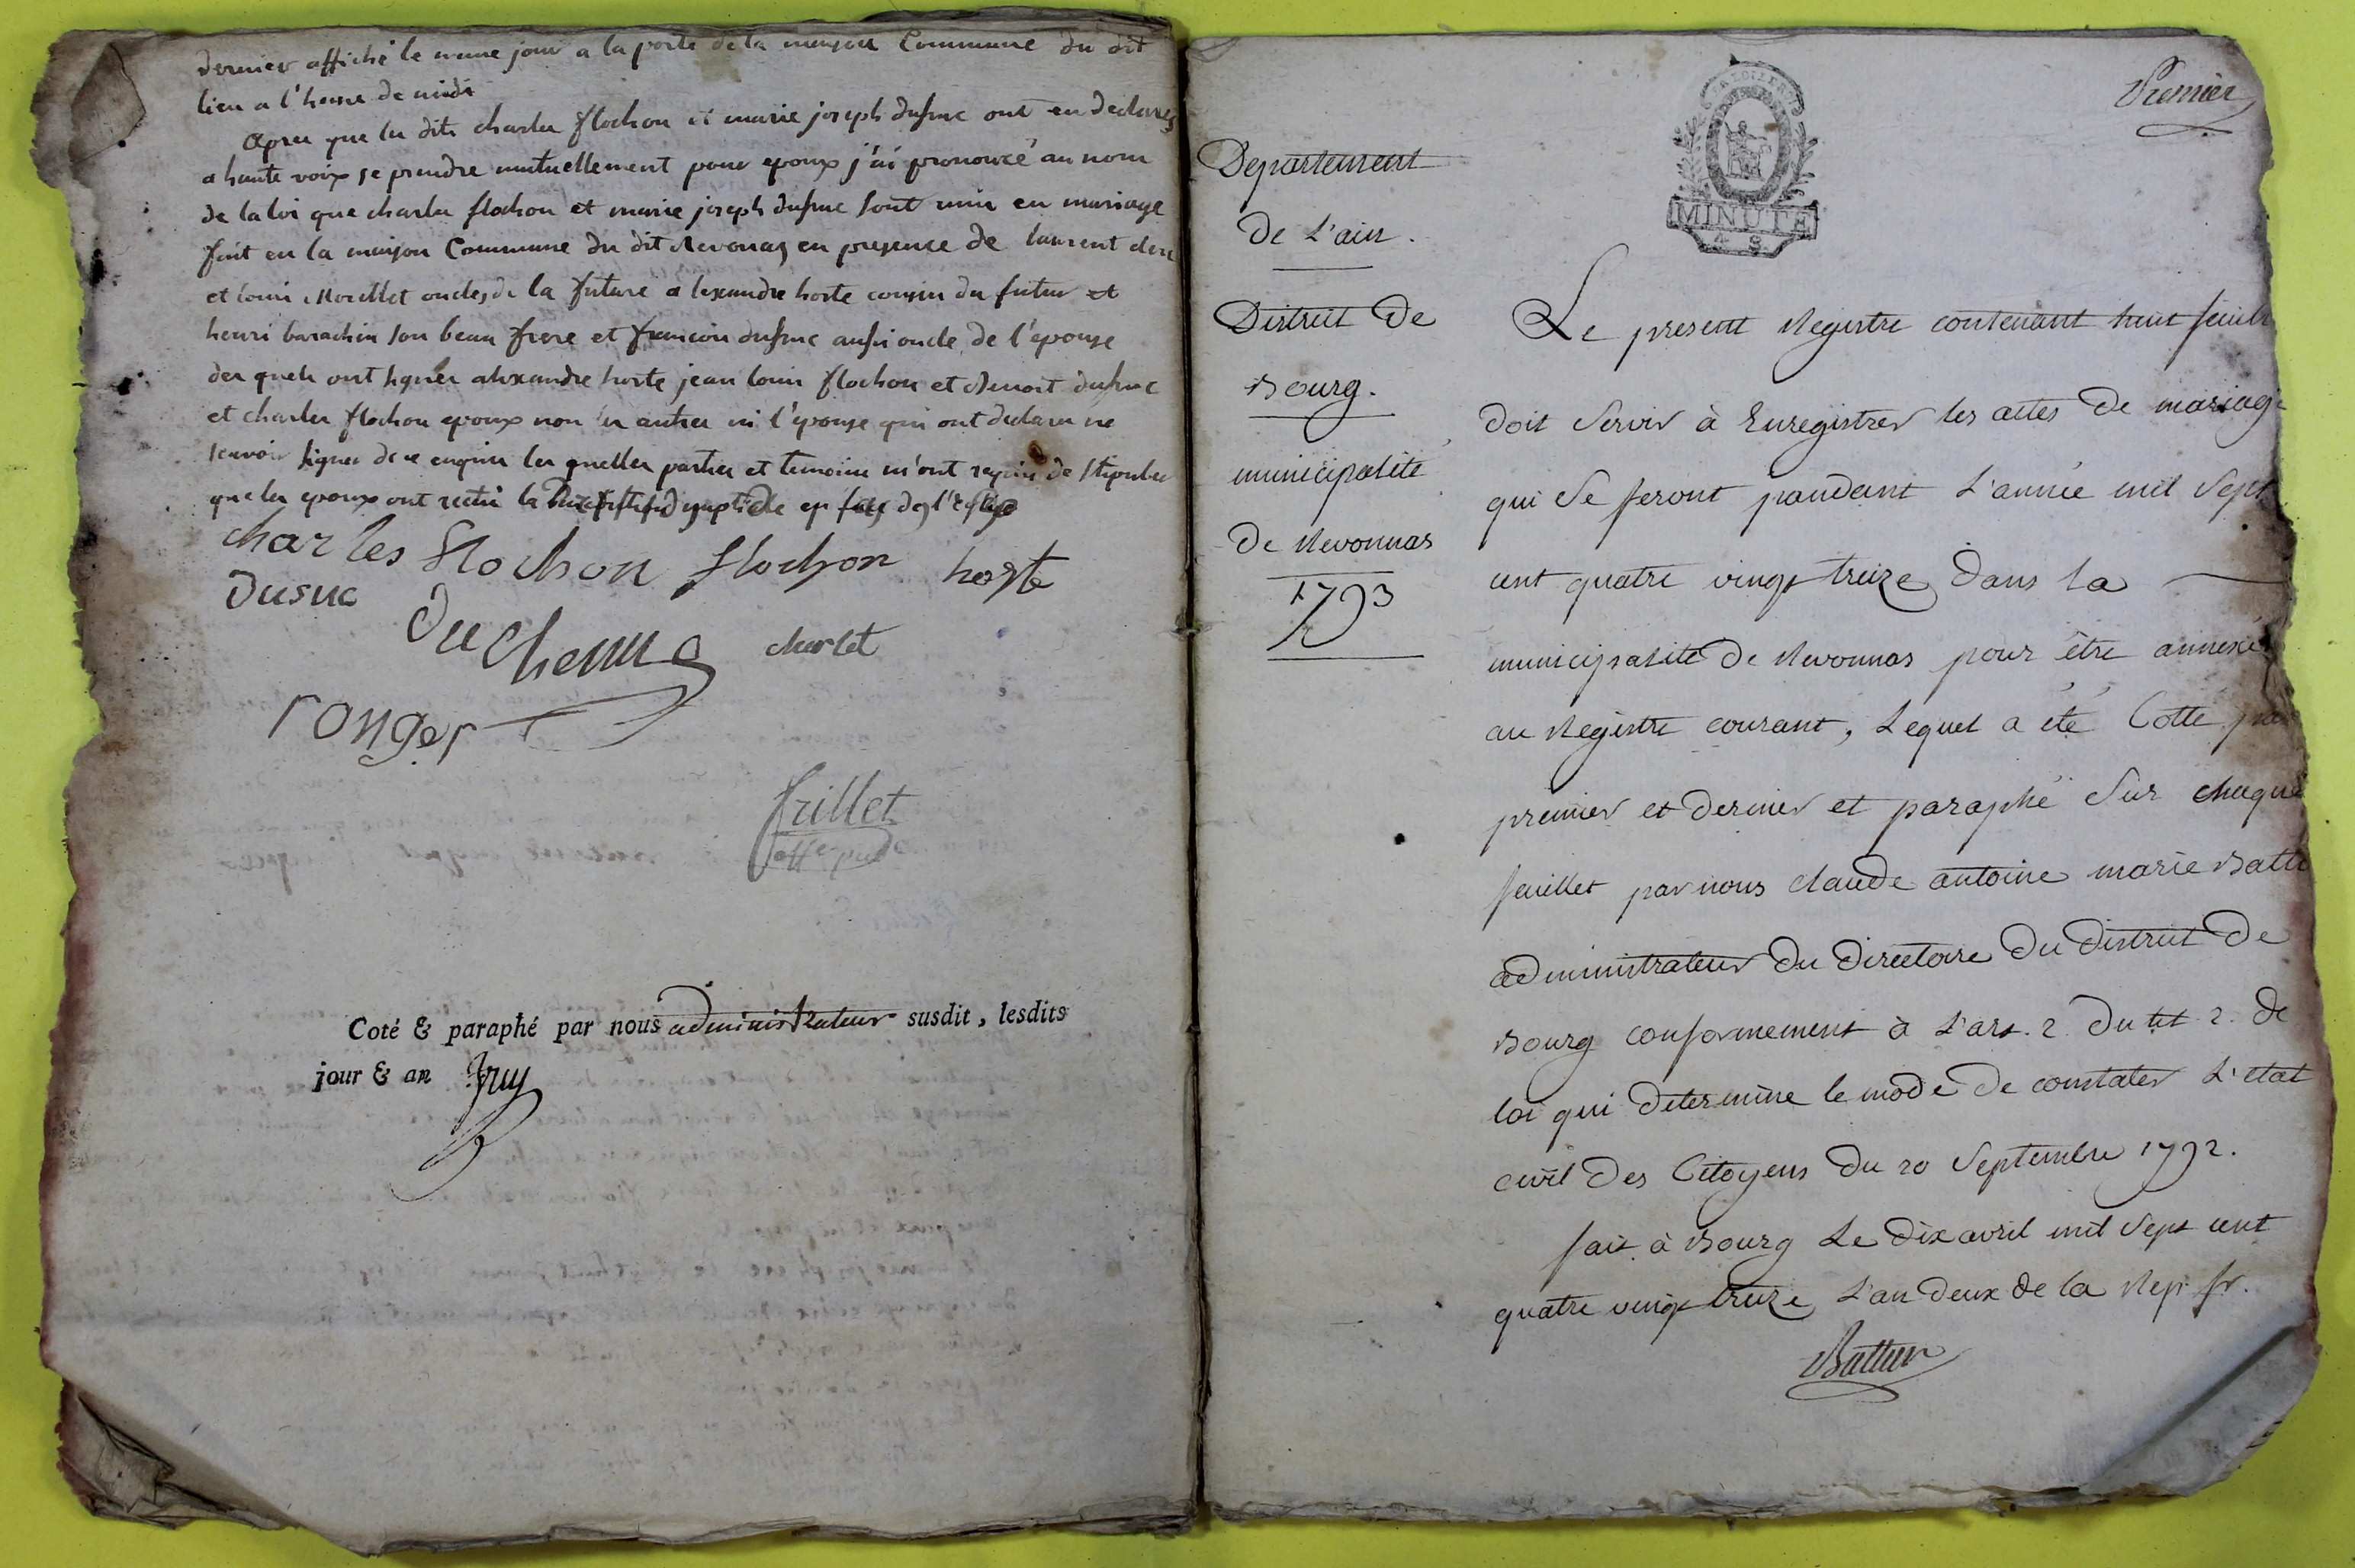 dernier affiché le meme jour a la porte de la maison Commune du dit
lieu a l'heure de midi
apres que les dits charles flochon et marie joseph dusuc ont eu declarés
a haute voix se prendre mutuellement pour epoux j'ai prononcé au nom
de la loi que charles flochon et marie joseph dusuc sont unis en mariage
fait en la maison Commune du dit Revonas en presence de laurent
et louis Morellet oncles de la future alexandre hoste cousin du futur et
henri barachin son beau frere et francois dusuc aussi oncle de l'epouse
des quels ont signés alexandre hoste jean louis flochon et Benoit dusuc
et charles flochon epoux non les autres ni l'epouse qui ont declaré ne
scavoir signer de ce enquis les quelles parties et temoins m'ont requis de stipuler
que les epoux ont recu la en de l'eglise
charles flochon flochon hoste
Dusuc Duchenne charlet
ronger
frillet
offe. pub
Coté & paraphé par nous administrateur susdit, lesdits
jour & an
Premier
Departement
De L'ain.
District De
Bourg.
municipalité
De Revonnas
1793
MINUTE
4 S.
Le present Registre contenant huit feuillets
doit servir à Enregistrer les actes De mariage
qui se feront pandant L'année mil sept
cent quatre vingt treize Dans la
municipalité De Revonnas pour être annexé
au Registre courant, Lequel a été Cotté par
premier et Dernier et paraphé sur chaque
feuillet par nous claude antoine marie
administrateur Du Directoire Du District De
Bourg conformement à L'art. 2 Du tit 2. de
loi qui Determine le mode De constater L'etat
civil Des Citoyens Du 20 Septembre 1792.
fait à Bourg Le Dix avril mil sept cent
quatre vingt treize L'an Deux de la Rep. fr.